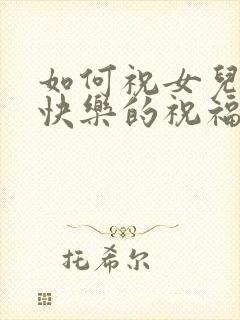 如何祝女兒
快樂的祝福
托希尔